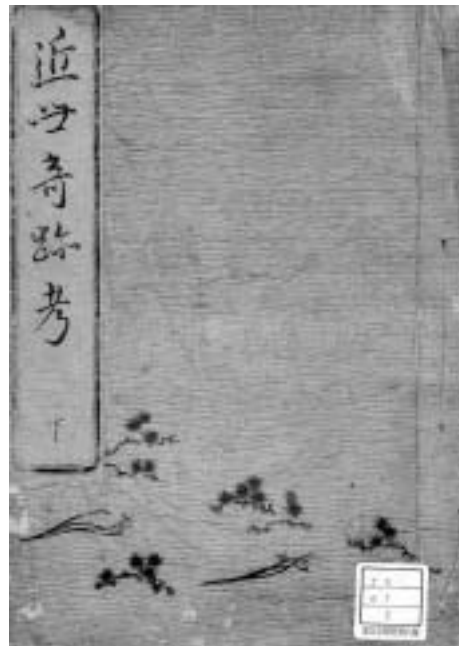 近世奇跡考
下